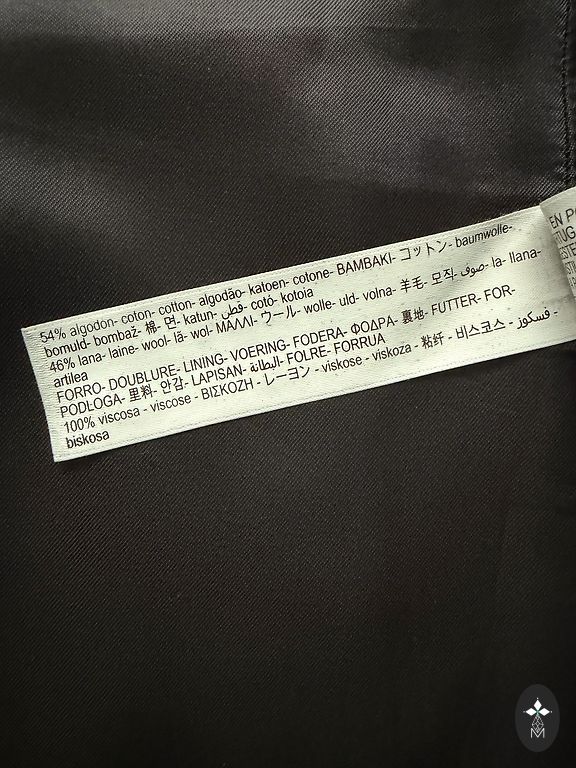 54% algodon- coton- cotton- algodão- katoen- cotone- BAMBAKI- コットン- baumwolle-
bomuld- bombaž- 棉- 면- katun- قطن- cotó- kotoia
46% lana- laine- wool- lã- wol- ΜΑΛΛΙ- ウール- wolle- uld- volna- 羊毛- 모직- صوف- la- llana-
artilea
FORRO- DOUBLURE- LINING- VOERING- FODERA- ΦΟΔΡΑ- 裏地- FUTTER- FOR-
PODLOGA- 里料- 안감- LAPISAN- البطانة- FOLRE- FORRUA
100% viscosa - viscose - ΒΙΣΚΟΖΗ - レーヨン - viskose - viskoza - 粘纤 - 비스코스 - فسكوز -
biskosa
EN PO
M